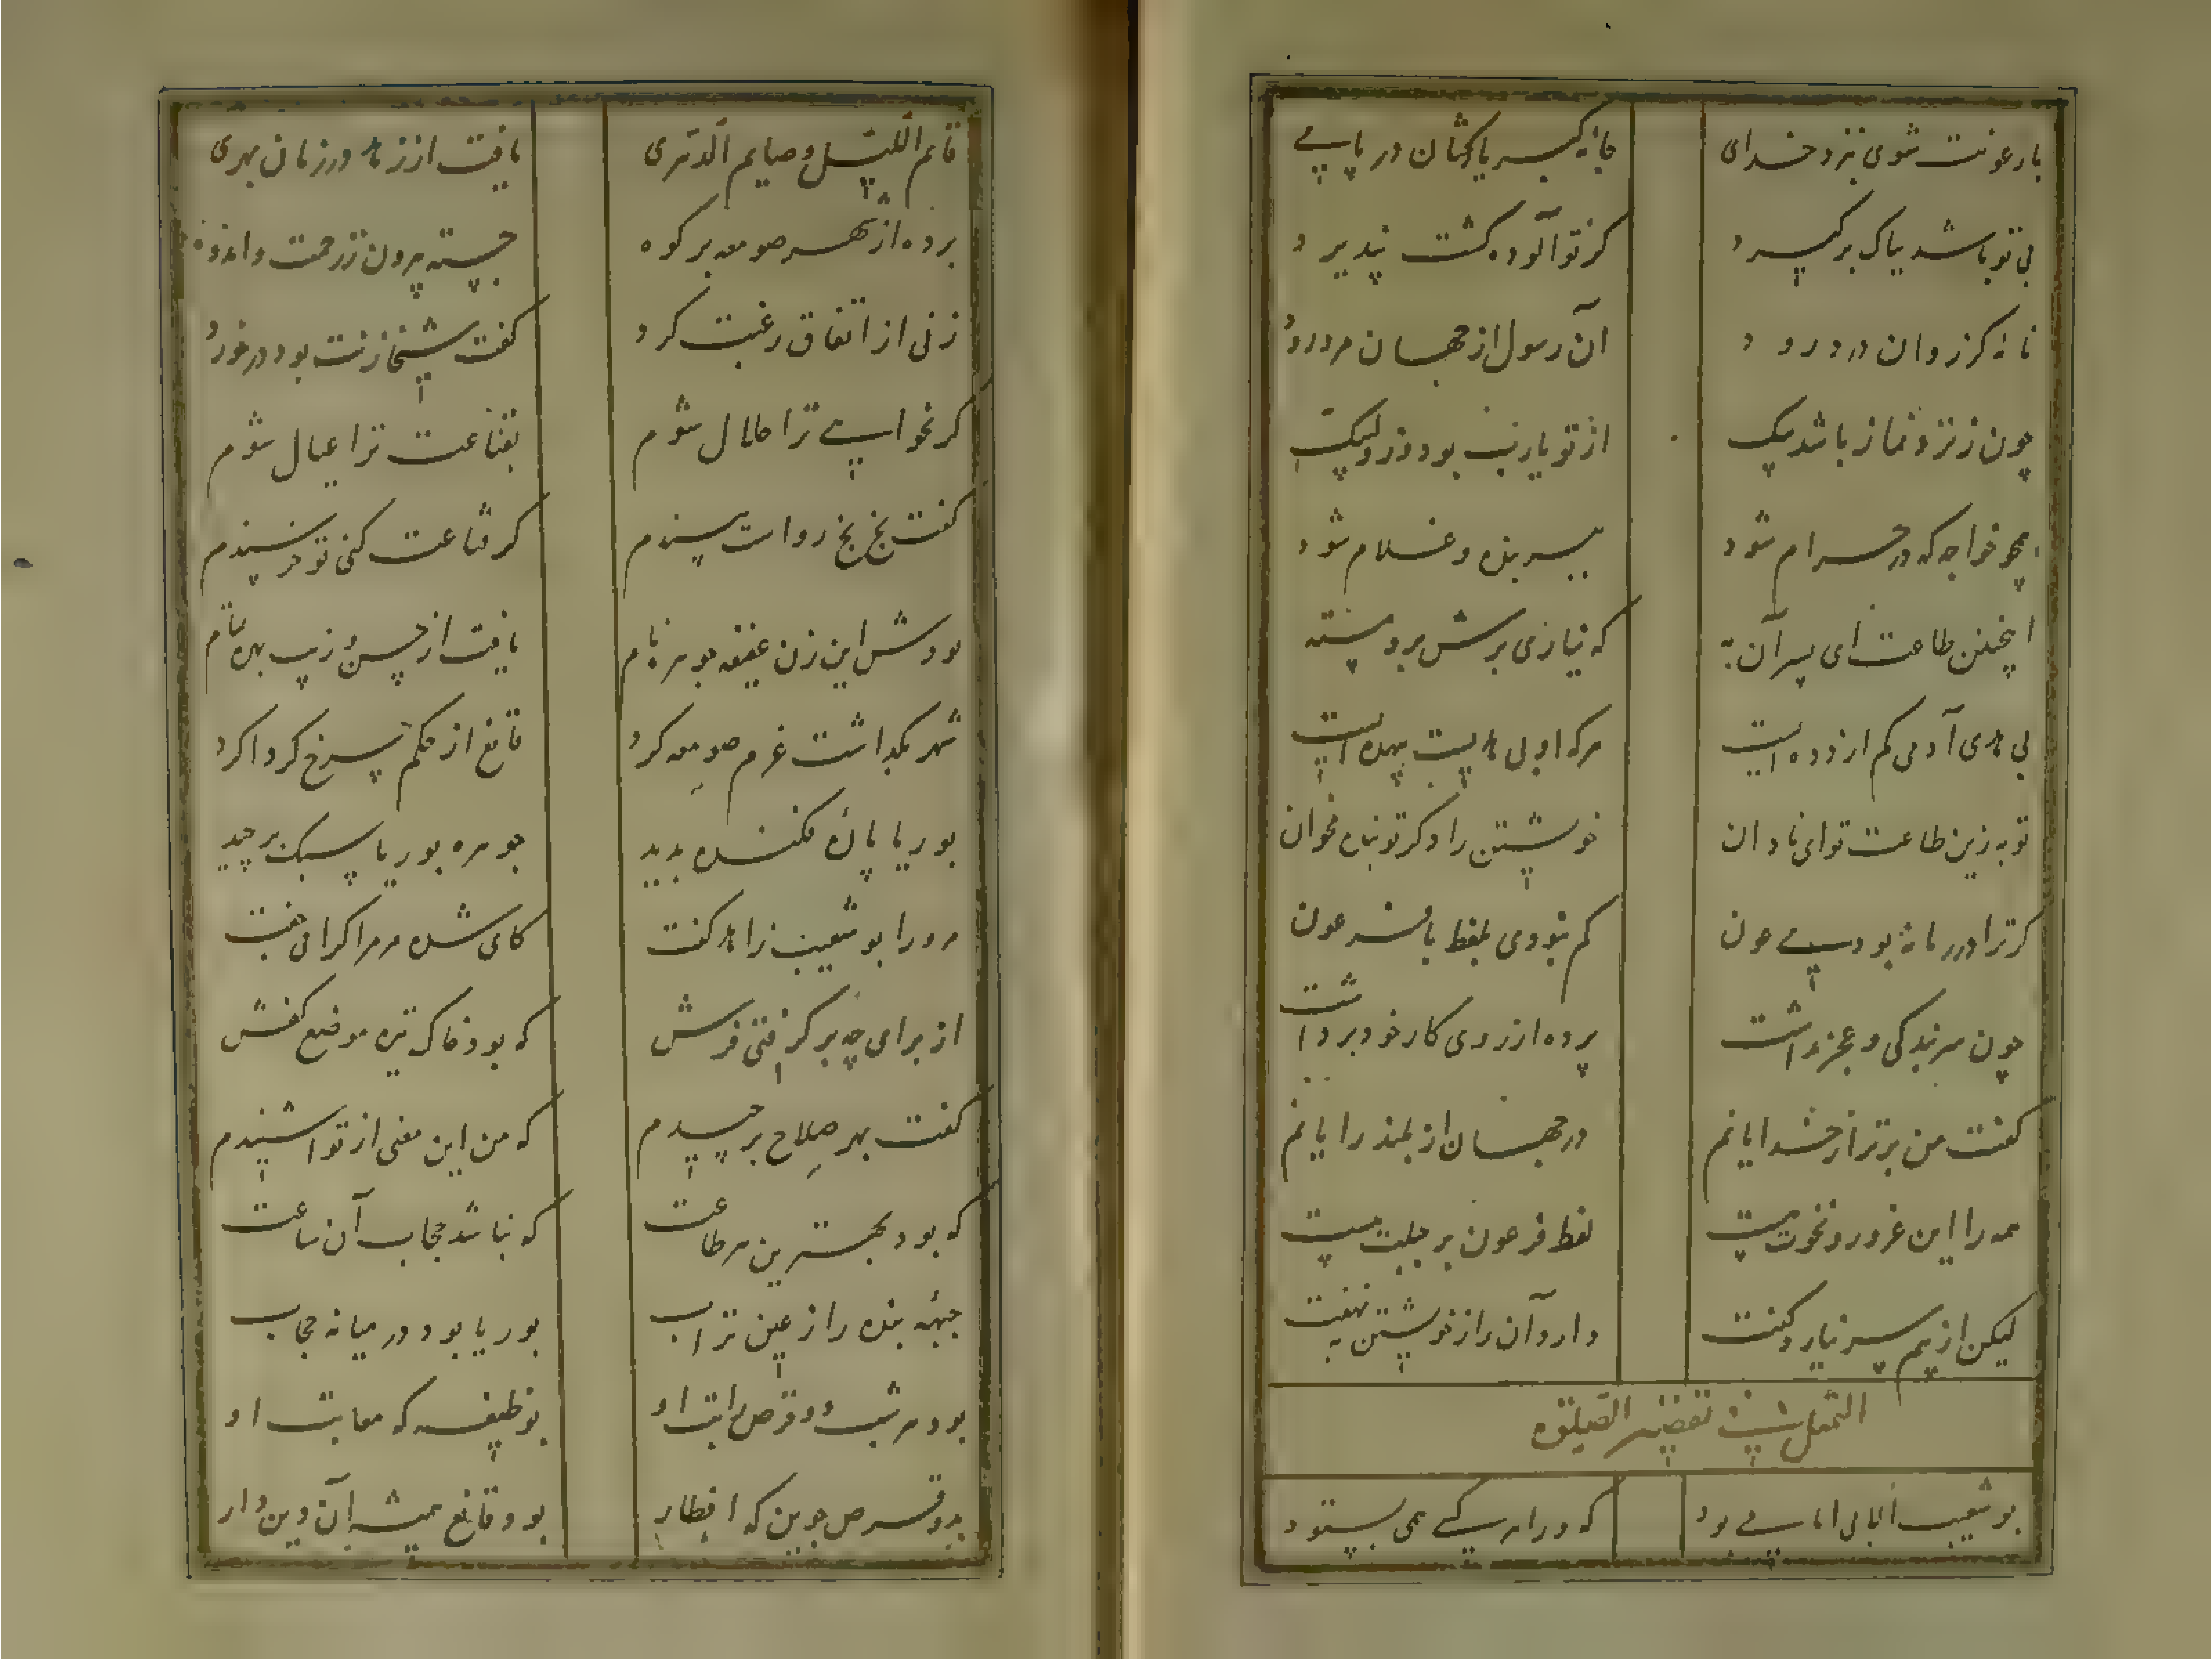 بارعونت شوی بنزد خدای جامه کبر پاکشان در پای
بی تو باشد پاک برگیرد کر تو آلوده گشت نپذیرد
نامه کز زوان درود آن رسول از جهان مرد درود
چون زنزد نماز باشد پیک از تو یارب بود وزو لبیک
همچو خواجه که در حرام شود بنده و غلام شود
اینچنین طاعت ای پسر آن به که نیاری برش برو مسته
بی های آدمی کم از دده است هرکه او بی هاست بیهده است
توبه زین طاعت تو ای نادان خویشتن را دگر تو بنده مخوان
کر ترا در نبودی عون کم نبودی بلفظ با فرعون
چون سر بندگی و عجز نداشت پرده از روی کار خود برداشت
گفت من برتر از خدایانم در جهان از بلند رایانم
همه را این غرور و نخوت هست لفظ فرعون بر جبلت هست
لیکن از بیم سر نیارد گفت دارد آن راز خویشتن به نهفت
التمثل فی تقصیر الصلوة
بوشعیب الابی امامی بود که ورا هر کسی همی بستود
قایم اللیل و صایم الدهری یافت از زهد در زمان بهری
برده از شهر صومعه بر کوه جسته بیرون ز زحمت و اندوه
زنی از اتفاق رغبت کرد گفت شیخا زنت بود درخورد
کر بخواهی ترا حلال شوم بقناعت ترا عیال شوم
گفت بخ بخ رواست پسندم کر قناعت کنی تو خرسندم
بود این زن عفیفه جوهره نام یافت از حسن و زیب بهره تمام
شهر بگذاشت عزم صومعه کرد قانع از حکم چرخ گرداگرد
بوریا پاره فکنده بدید جوهره بوریا سبک برچید
مرد را بوشعیب زاهد گفت کای شده مر مرا گرامی جفت
از برای چه بر گرفتی فرش که بود خاک تیره موضع کفش
گفت بهر صلاح برچیدم که من این معنی از تو اشنیدم
که بود بهترین هر طاعت که نباشد حجاب آن ساعت
جبهه بنده را ز عین تراب بوریا بود در میانه حجاب
بود هر شب دو قرص راتب او بوظیفه که
بدو قرص جوین که افطار بود قانع همیشه آن دین دار